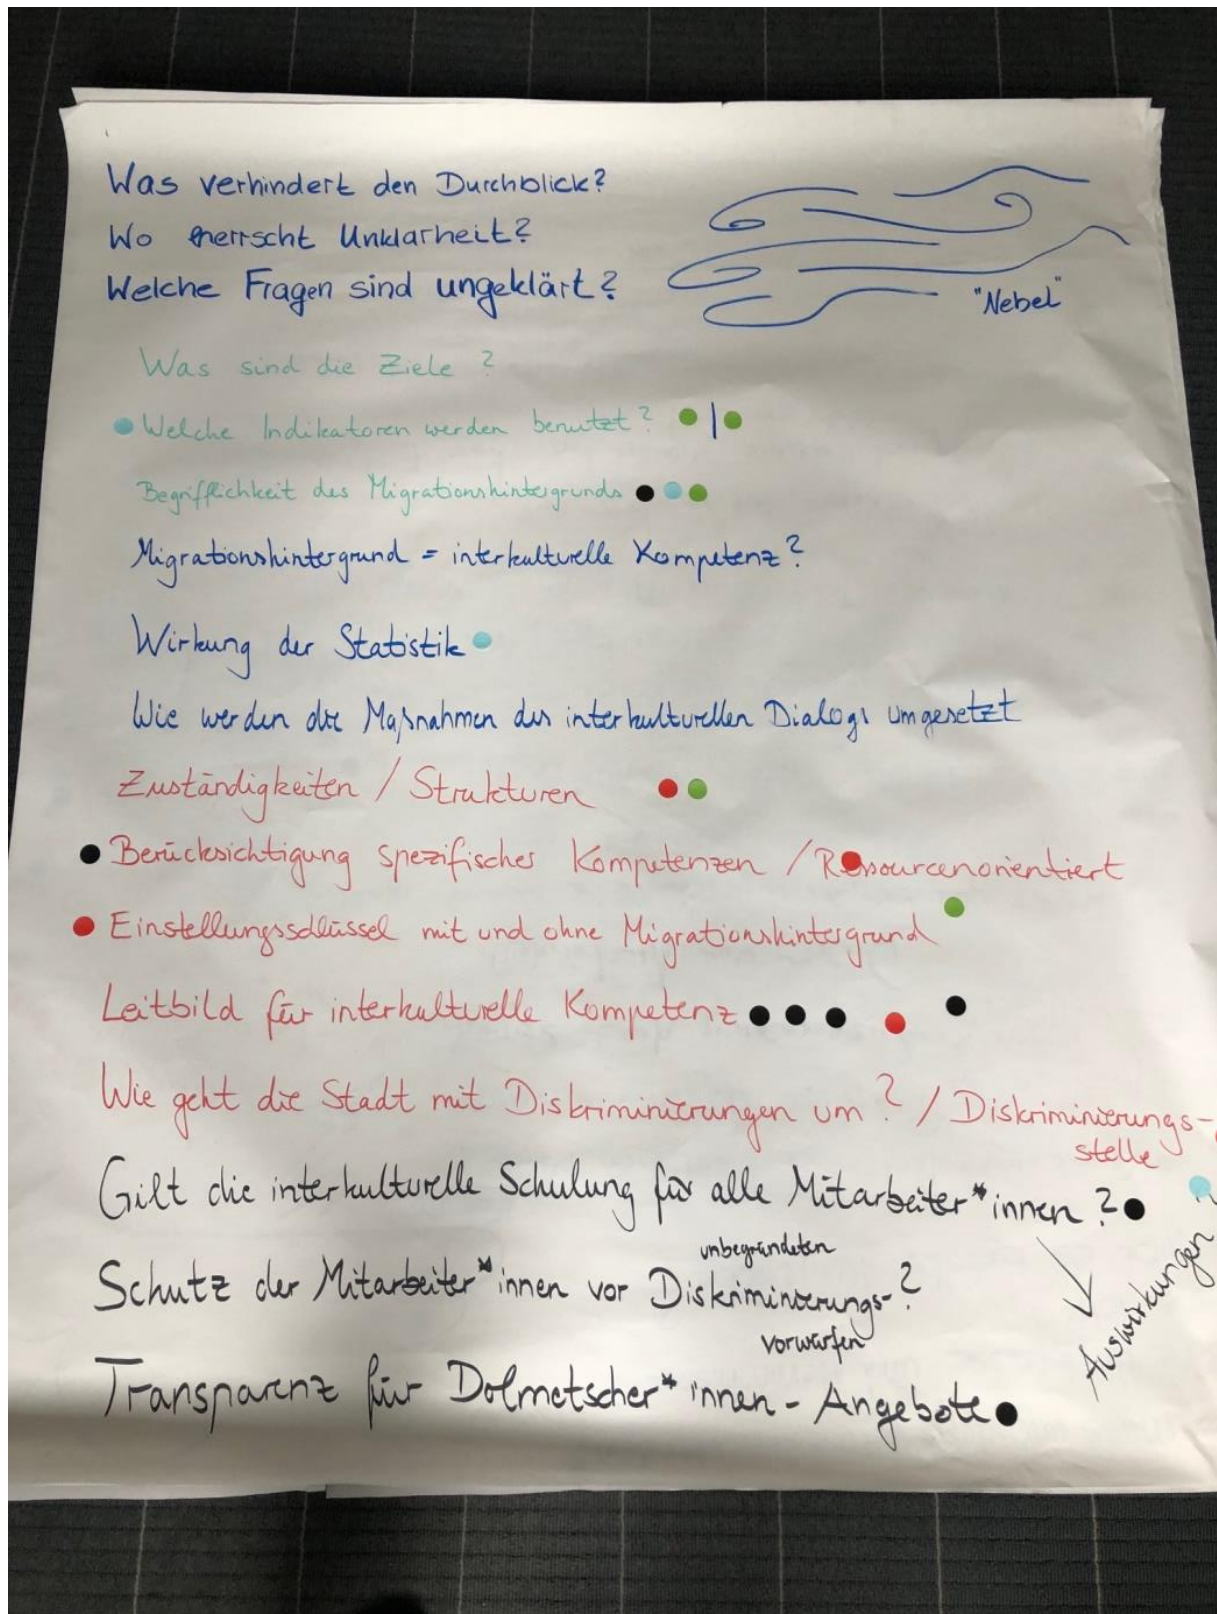 Was verhindert den Durchblick?
Wo herrscht Unklarheit?
Welche Fragen sind ungeklärt?
"Nebel"
Was sind die Ziele ?
Welche Indikatoren werden benutzt?
Begrifflichkeit des Migrationshintergrunds
Migrationshintergrund = interkulturelle Kompetenz?
Wirkung der Statistik
Wie werden die Maßnahmen des interkulturellen Dialogs umgesetzt
Zuständigkeiten / Strukturen
Berücksichtigung spezifischer Kompetenzen / Ressourcenorientiert
Einstellungsschlüssel mit und ohne Migrationshintergrund
Leitbild für interkulturelle Kompetenz
Wie geht die Stadt mit Diskriminierungen um ? / Diskriminierungs-
stelle
Gilt die interkulturelle Schulung für alle Mitarbeiter*innen ?
Auswirkungen ?
unbegründeten
Schutz der Mitarbeiter*innen vor Diskriminierungs- ?
vorwürfen
Transparenz für Dolmetscher*innen - Angebote